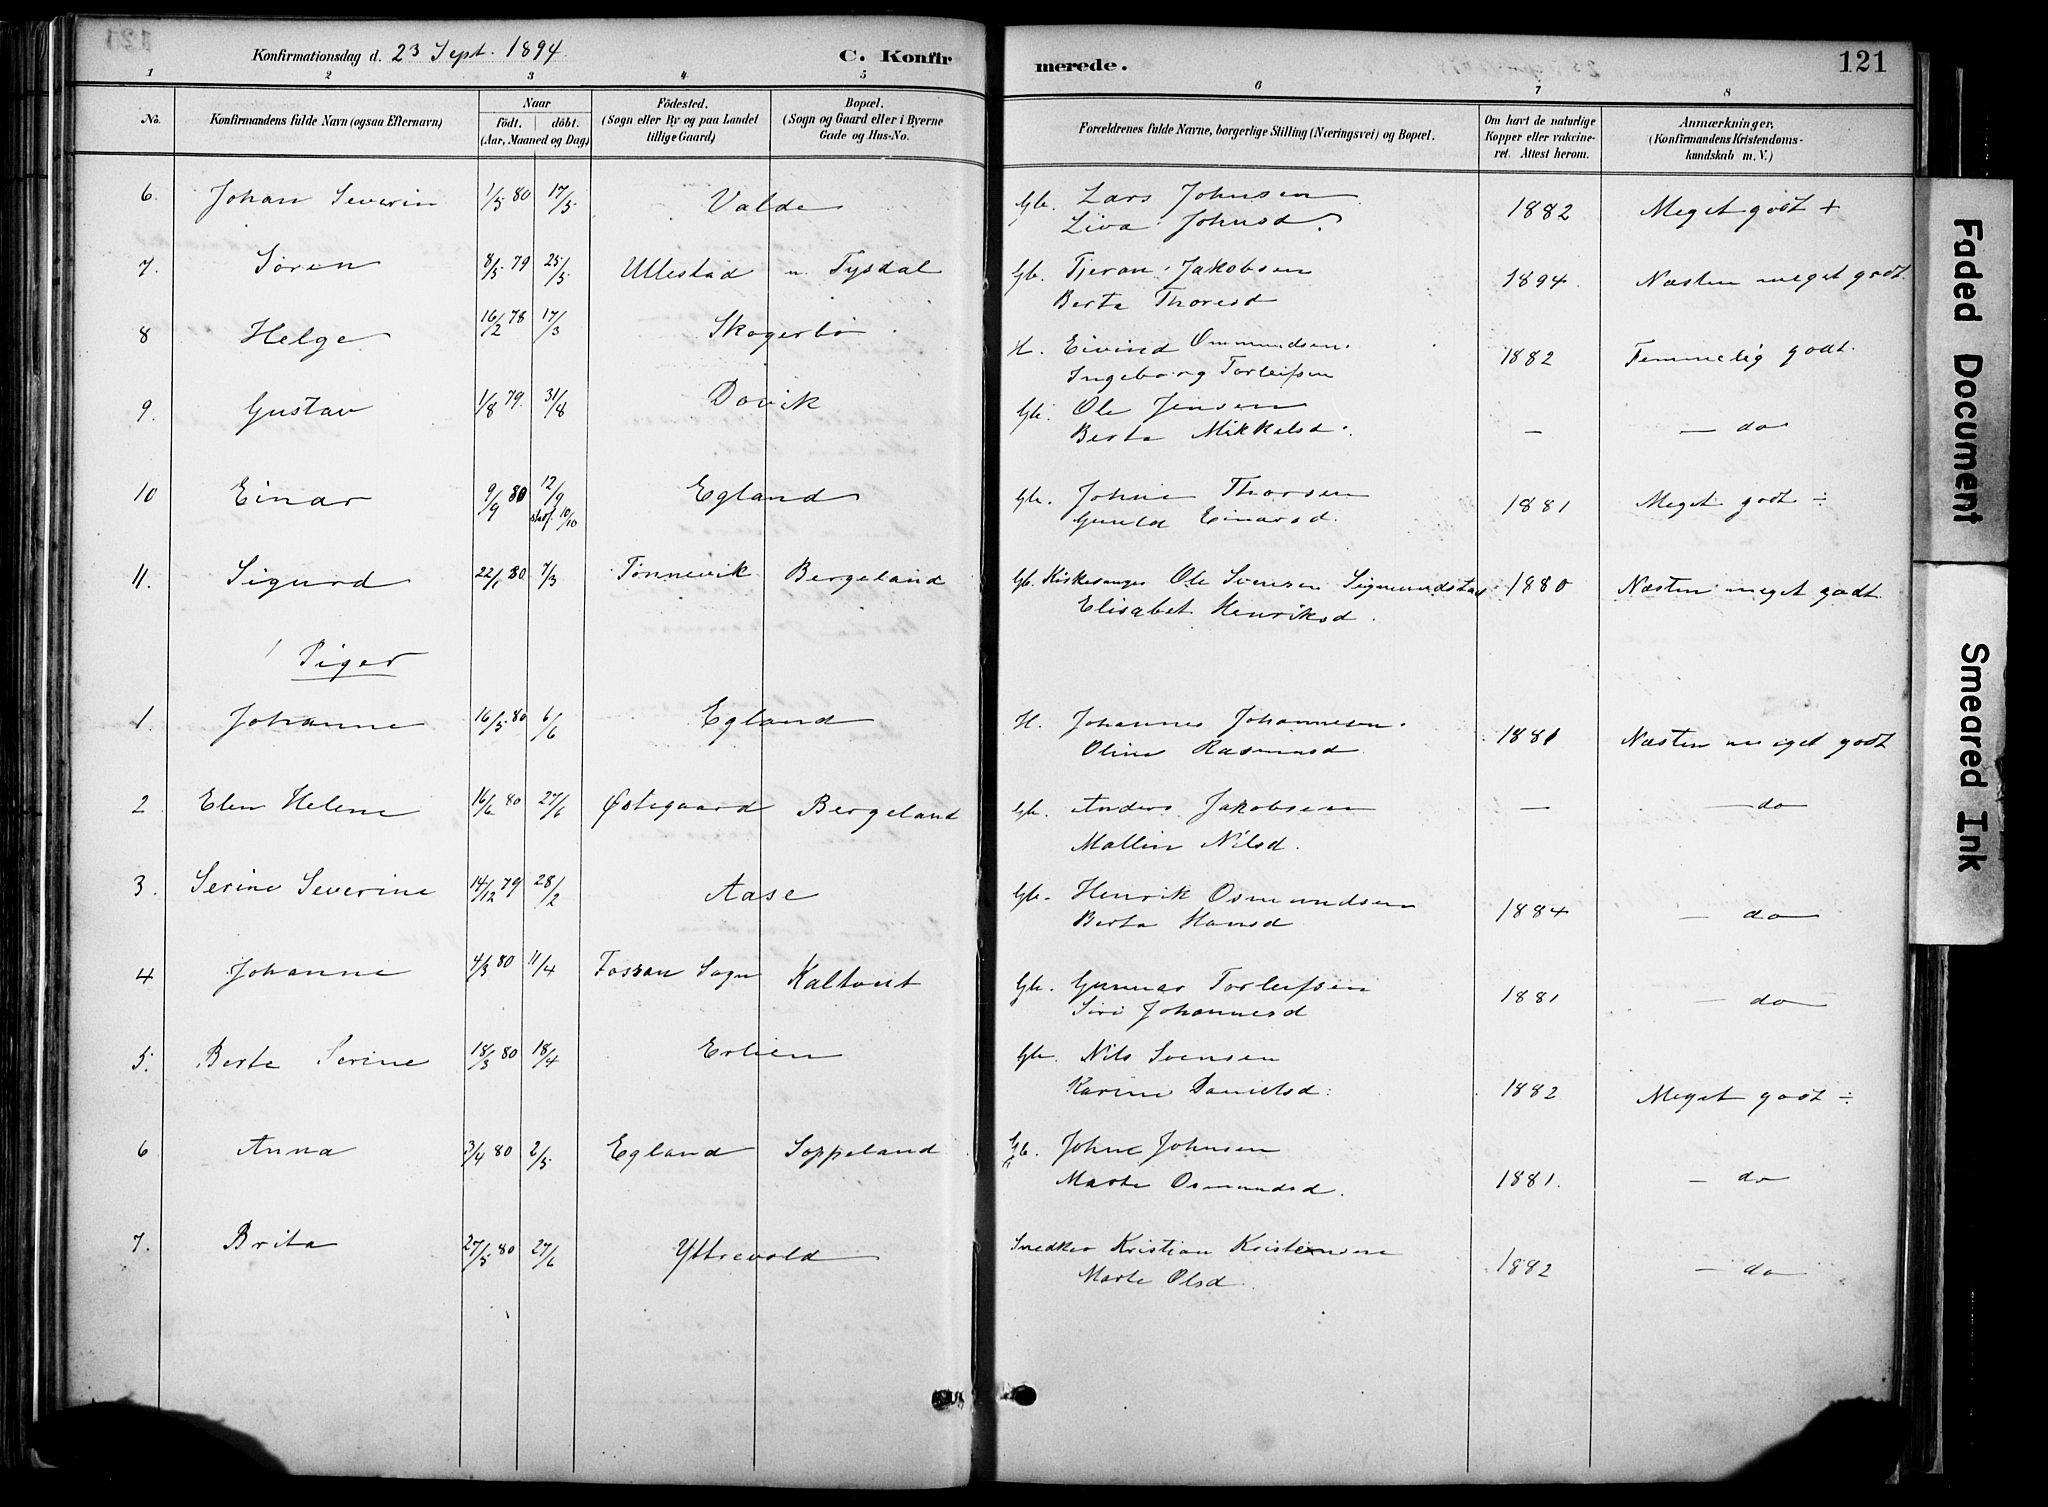 Konfirmationsdag d. 23 Sept. 1894. C. Konfir merede. 121
1 2 3 4 5 6 7 8
No. Konfirmandens fulde Navn (ogsaa Efternavn) Naar födt. döbt. (Aar, Maaned og Dag) Födested. (Sogn eller By og paa Landet tillige Gaard.) Bopæl. (Sogn og Gaard eller i Byerne Gade og Hus-No. Forældrenes fulde Navne, borgerlige Stilling (Næringsvei) og Bopæl. Om havt de naturlige Kopper eller vakcineret. Attest herom. Anmærkninger, (Konfirmandens Kristendomskundskab m. V.)
6. Johan Severin 1/5 80 17/5 Valde Gb. Lars Johnsen 1882 Meget godt +
Liva Johnsd.
7. Sören 8/5 79 25/5 Ullestad n. Tysdal Gb. Tjeran Jakobsen 1894. Næsten meget godt.
Berta Thoresd
8 Helge 16/2 78 17/3 Skogerbö H. Eivind Ommundsen. 1882 Temmelig godt.
Ingeborg Torleifsen
9. Gustav 1/8 79. 31/8 Dovik Gb. Ole Jensen — — do
Berta Mikkelsd.
10 Einar 9/9 80 12/9 stadf. 10/10 Egland Gb. Johne Thorsen 1881 Meget godt ÷
Gunla Einarsd.
11. Sigurd 22/1 80 7/3 Tönnevik Bergeland Gb. Kirkesanger Ole Svensen Sigmundstad 1880 Næsten meget godt
Elisabet Henriksd.
Piger
1. Johanne 16/5 80 6/6 Egland H. Johannes Johannesen. 1881 Næsten meget godt
Oline Rasmusd.
2 Elen Helene 16/6 80 27/6 Østegaard Bergeland Gb. Anders Jakobsen — — do
Mallin Nilsd.
3. Serine Severine 14/12 79 28/2 Aase Gb. Henrik Osmundsen 1884 — do
Berta Hansd
4 Johanne 4/3 80 11/4 Fossan Sogn Kaltveit Gb. Gunnar Torleifsen 1881 — do
Siri Johannesd
5. Berte Serine 18/3 80 18/4 Erlien Gb. Nils Svensen
Karine Danielsd. 1882 Meget godt ÷
6 Anna 3/4 80 2/5 Egland Soppeland Gb. Johne Johnsen
Marte Osmundsd. 1881. — do
7. Brita 27/5 80 27/6 Yttrevold Snedker Kristian Kristensen
Marte Olsd. 1882 — do
Faded Document
Smeared Ink